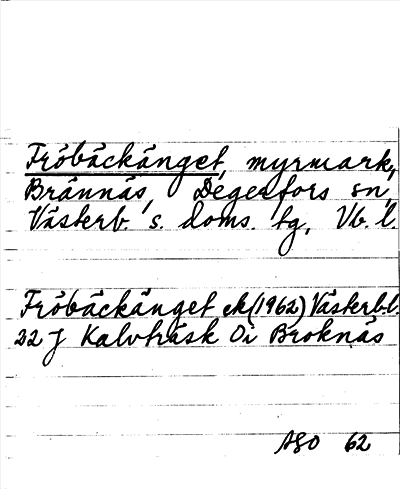 Fröbäckänget, myrmark,
Brännäs, Degerfors sn,
Västerb. s. doms. tg, Vb. l.
Fröbäckänget ek (1962) Västerb.l.
22 J Kalvträsk Oi Broknäs
ASO 62